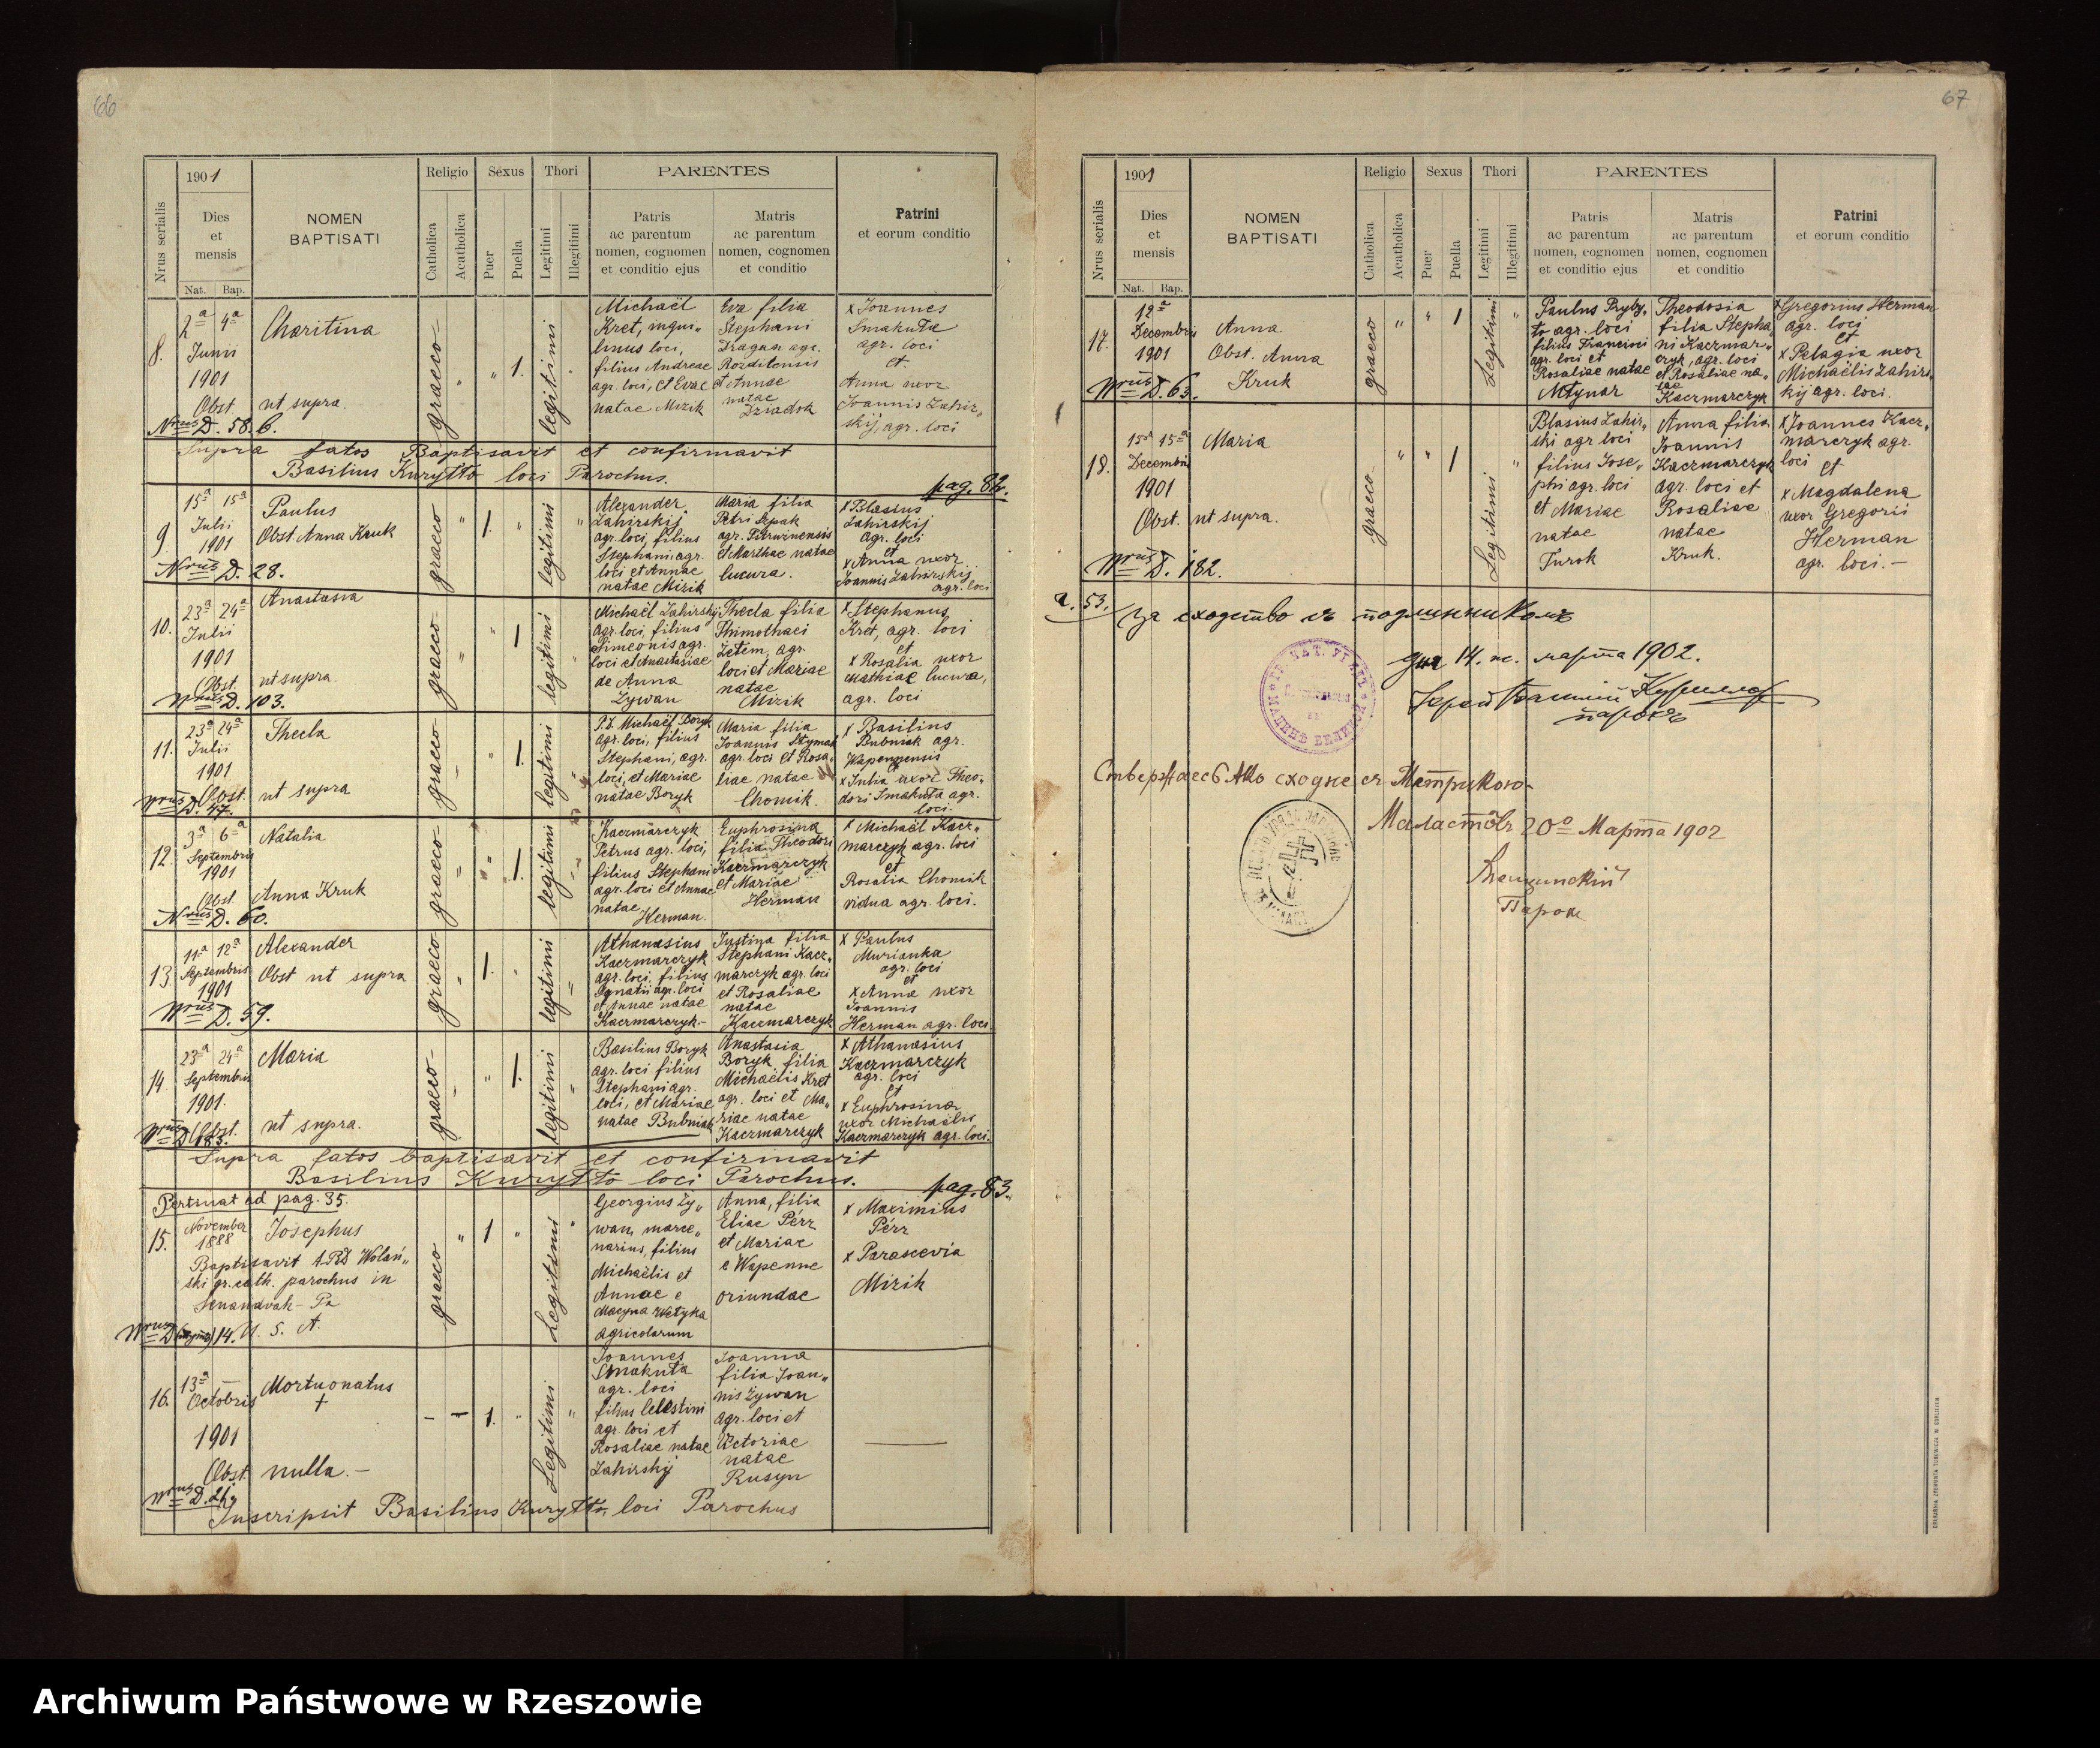 66
1901
Nrus serialis
Dies
et
mensis
Nat. Bap.
NOMEN
BAPTISATI
Religio
Catholica
Acatholica
Sexus
Puer
Puella
Thori
Legitimi
Illegitimi
PARENTES
Patris
ac parentum
nomen, cognomen
et conditio ejus
Matris
ac parentum
nomen, cognomen
et conditio
Patrini
et eorum conditio
8.
2a 4a
Junii
1901
Obst ut supra.
Nrus D. 58. 6.
Charitina
graeco
1.
legitimi
Michaël
Kret, inqui„
linus loci,
filius Andreae
agr. loci, et Evae
natae Mizik
Eva filia
Stephani
Dragan agr.
et Annae
natae
Dziadok
x Joannes
Smakuta
agr. loci
et
Anna uxor
Joannis Zahir„
skij, agr. loci
Supra fatos Baptisavit et confirmavit
Basilius Kuryłło loci Parochus.
pag. 82.
9
15a 15a
Julii
1901
Nrus D. 28.
Paulus
Obst Anna Kruk
graeco
1.
legitimi
Alexander
Zahirskij
agr. loci, filius
Stephani agr.
loci et Annae
natae Mizik
Maria filia
Petri Szpak
et Marthae natae
lucura.
x Blasius
Zahirskij
agr. loci
et
x Anna uxor
Joannis Zahirskij
agr. loci
10.
23a 24a
Julii
1901
Obst. ut supra.
Nrus D. 103.
Anastasia
graeco
1
legitimi
Michaël Zahirskij
agr. loci, filius
Simeonis agr.
loci et Anastasiae
de Anna
Zywan
Thecla filia
Thimothaei
Zetem, agr.
loci et Mariae
natae
Mizik
x Stephanus
Kret, agr. loci
et
x Rosalia uxor
Mathiae lucura,
agr. loci
11.
23a 24a
Julii
1901
Obst. ut supra
Nrus D. 47.
Thecla
graeco
1.
legitimi
Michaël Boryk
agr. loci, filius
Stephani, agr.
loci, et Mariae
natae Boryk
Maria filia
Joannis
agr. loci et Rosa„
liae natae
Chomik.
x Basilius
Bubniak agr.
Wapennensis
x Julia uxor Theo„
dori Smakuta agr.
loci.
12.
3a 6a
Septembris
1901
Obst. Anna Kruk
Nrus D. 60.
Natalia
graeco
1.
legitimi
Kaczmarczyk
Petrus agr. loci,
filius Stephani
agr. loci et Annae
natae
Herman.
Euphrosina
filia Theodori
Kaczmarczyk
et Mariae
Herman
x Michaël Kacz„
marczyk agr. loci
et
Rosalia Chomik
vidua agr. loci.
13.
11a 12a
Septembris
1901
Nrus D. 59.
Alexander
Obst ut supra
graeco
1.
legitimi
Athanasius
Kaczmarczyk
agr. loci, filius
Ignatii agr. loci
et Annae natae
Kaczmarczyk.–
Justina filia
Stephani Kacz„
marczyk agr. loci
et Rosaliae
natae
Kaczmarczyk
x Paulus
Murianka
agr. loci
et
x Anna uxor
Joannis
Herman agr. loci.
14.
23a 24a
Septembris
1901.
Obst. ut supra.
Nrus D. 183.
Maria
graeco
1.
legitimi
Basilius Boryk
agr. loci filius
Stephani agr.
loci, et Mariae
natae Bubniak
Anastasia
Boryk filia
Michaëlis Kret
agr. loci et Ma„
riae natae
Kaczmarczyk
x Athanasius
Kaczmarczyk
agr. loci
et
x Euphrosina
uxor Michaëlis
Kaczmarczyk agr. loci.
Supra fatos baptisavit et confirmavit
Basilius Kuryłło loci Parochus.
pag. 83.
Pertinat ad pag. 35.
15.
November
1888
Josephus
Baptisavit Wolań„
ski gr. cath. parochus in
Shenandoah – Pa
U. S. A.
14.
graeco
1
Legitimi
Georgius Zy„
wan, merce„
narius, filius
Michaëlis et
Annae e
Macyna Wetyka
agricolarum
Anna, filia
Eliae Pérz
et Mariae
e Wapenne
oriundae
x Maximius
Pérz
x Parascevia
Mizik
16.
13a
Octobris
1901
Obst. nulla. –
Mortuonatus
†
1.
Legitimi
Joannes
Smakuta
agr. loci
filius Celestini
agr. loci et
Rosaliae natae
Zahirskij
Joanna
filia Joan„
nis Zywan
agr. loci et
Victoriae
natae
Rusyn
Inscripsit Basilius Kuryłło, loci Parochus
67
1901
Nrus serialis
Dies
et
mensis
Nat. Bap.
NOMEN
BAPTISATI
Religio
Catholica
Acatholica
Sexus
Puer
Puella
Thori
Legitimi
Illegitimi
PARENTES
Patris
ac parentum
nomen, cognomen
et conditio ejus
Matris
ac parentum
nomen, cognomen
et conditio
Patrini
et eorum conditio
17.
12a
Decembris
1901
Nrus D. 63.
Anna
Obst. Anna
Kruk
graeco
1
Legitimi
Paulus Pryby„
to agr. loci
filius Francisci
agr. loci et
Rosaliae natae
Młynar
Theodosia
filia Stepha„
ni Kaczmar„
czyk, agr. loci
et Rosaliae na„
tae
Kaczmarczyk
x Gregorius Herman
agr. loci
et
x Pelagia uxor
Michaëlis Zahirs„
kij agr. loci.
18.
15a 15a
Decembris
1901
Obst. ut supra.
Nrus D. 182.
Maria
graeco
1
Legitimi
Blasius Zahir„
ski agr loci
filius Jose„
phi agr. loci
et Mariae
natae
Turok
Anna filia
Joannis
Kaczmarczyk
agr. loci et
Rosaliae
natae
Kruk.
x Joannes Kacz„
marczyk agr.
loci et
x Magdalena
uxor Gregorii
Herman
agr. loci. –
53.
За сходство съ подлинникомъ
дня 14. н. марта 1902.
Іерей Василій Курилло
парохъ
Стверждаесь яко сходне съ Метрикою.
Маластôвъ 20o Марта 1902
Парох
DRUKARNIA ZYGMUNTA TOKARSKIEGO W GORLICACH
Archiwum Państwowe w Rzeszowie